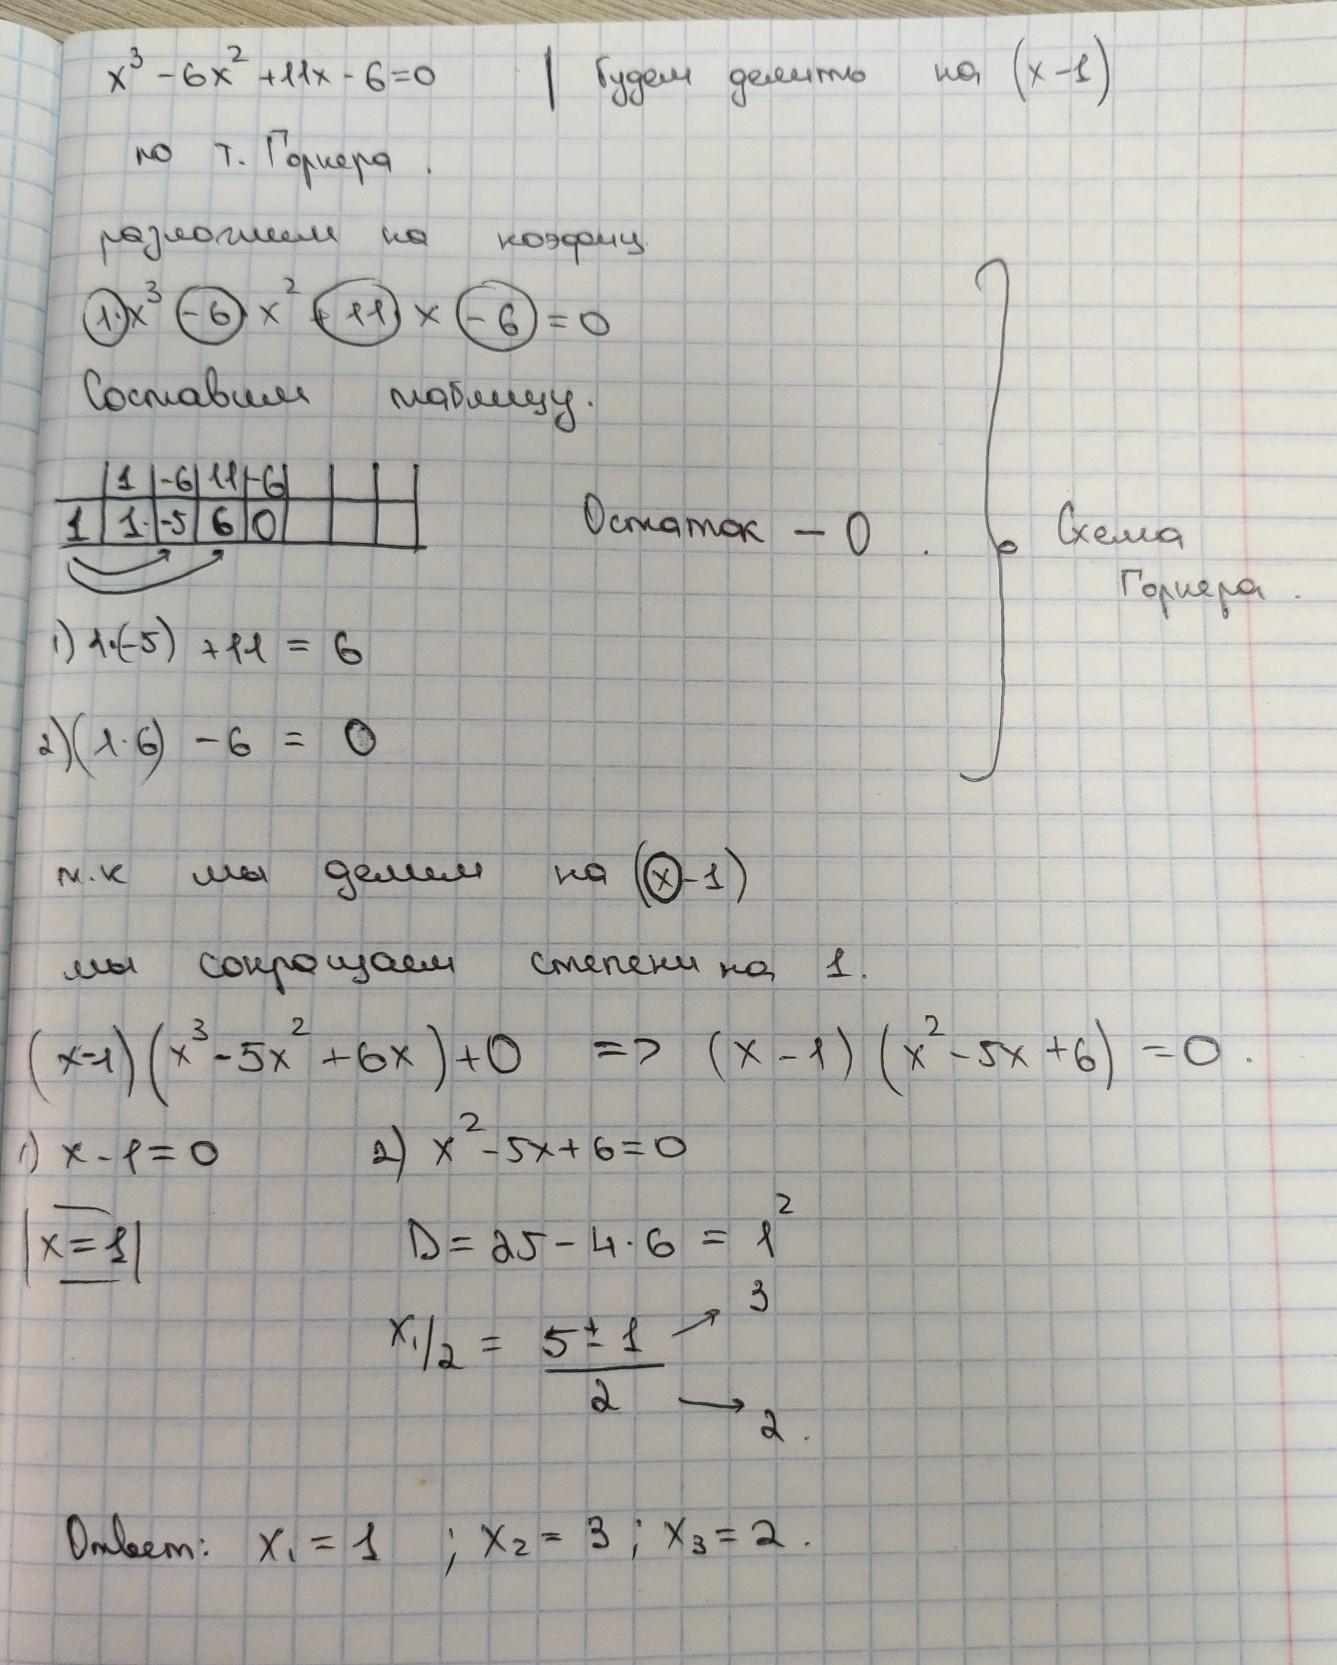 x³ - 6x² + 11x - 6 = 0 | будем делить на (x-1)
по т. Горнера.
разложим на коэфиц.
1·x³ -6 x² +11 x -6 = 0
Составим таблицу.
1 -6 11 -6
1 1 -5 6 0
Остаток - 0.
Схема
Горнера.
1) 1·(-5) + 11 = 6
2) (1·6) - 6 = 0
т.к мы делим на (x-1)
мы сокращаем степени на 1.
(x-1)(x³ - 5x² + 6x) + 0 => (x-1)(x² - 5x + 6) = 0.
1) x - 1 = 0 2) x² - 5x + 6 = 0
x = 1 D = 25 - 4·6 = 1²
x₁/₂ = (5 ± 1)/2 → 3 → 2.
Ответ: x₁ = 1 ; x₂ = 3 ; x₃ = 2.